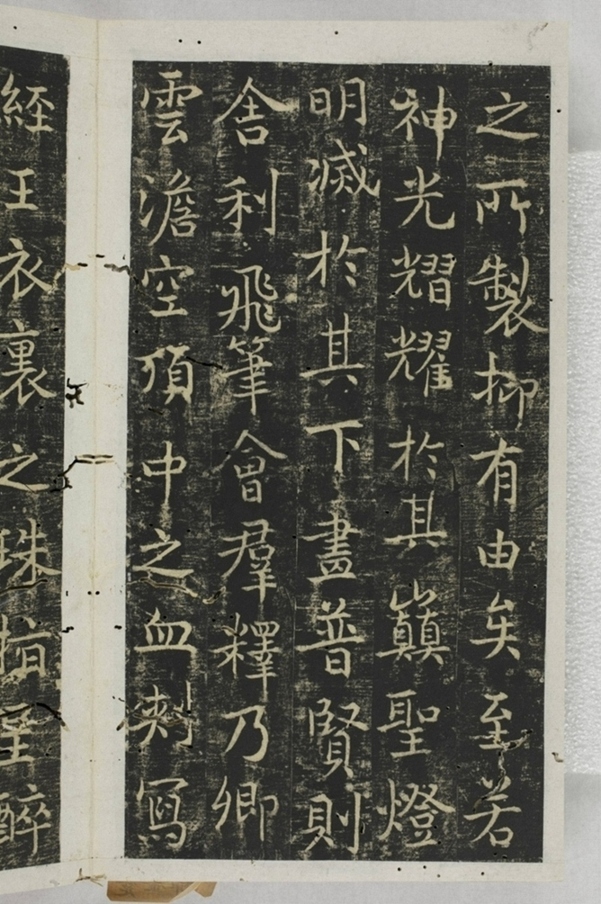 之所製抑有由矣至若
神光熠耀於其巔聖燈
明滅於其下畫普賢則
舍利飛筆會群釋乃卿
雲澹空頂中之血刺寫
經王衣裏之珠指呈醉